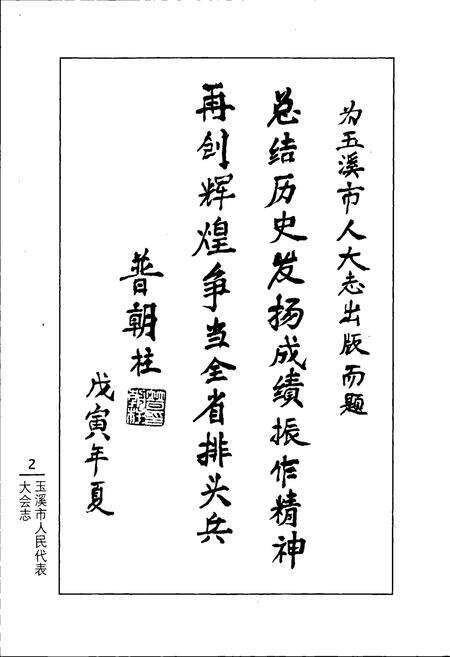 为玉溪市人大志出版而题
总结历史发扬成绩振作精神
再创辉煌争当全省排头兵
普朝柱
戊寅年夏
2
玉溪市人民代表
大会志